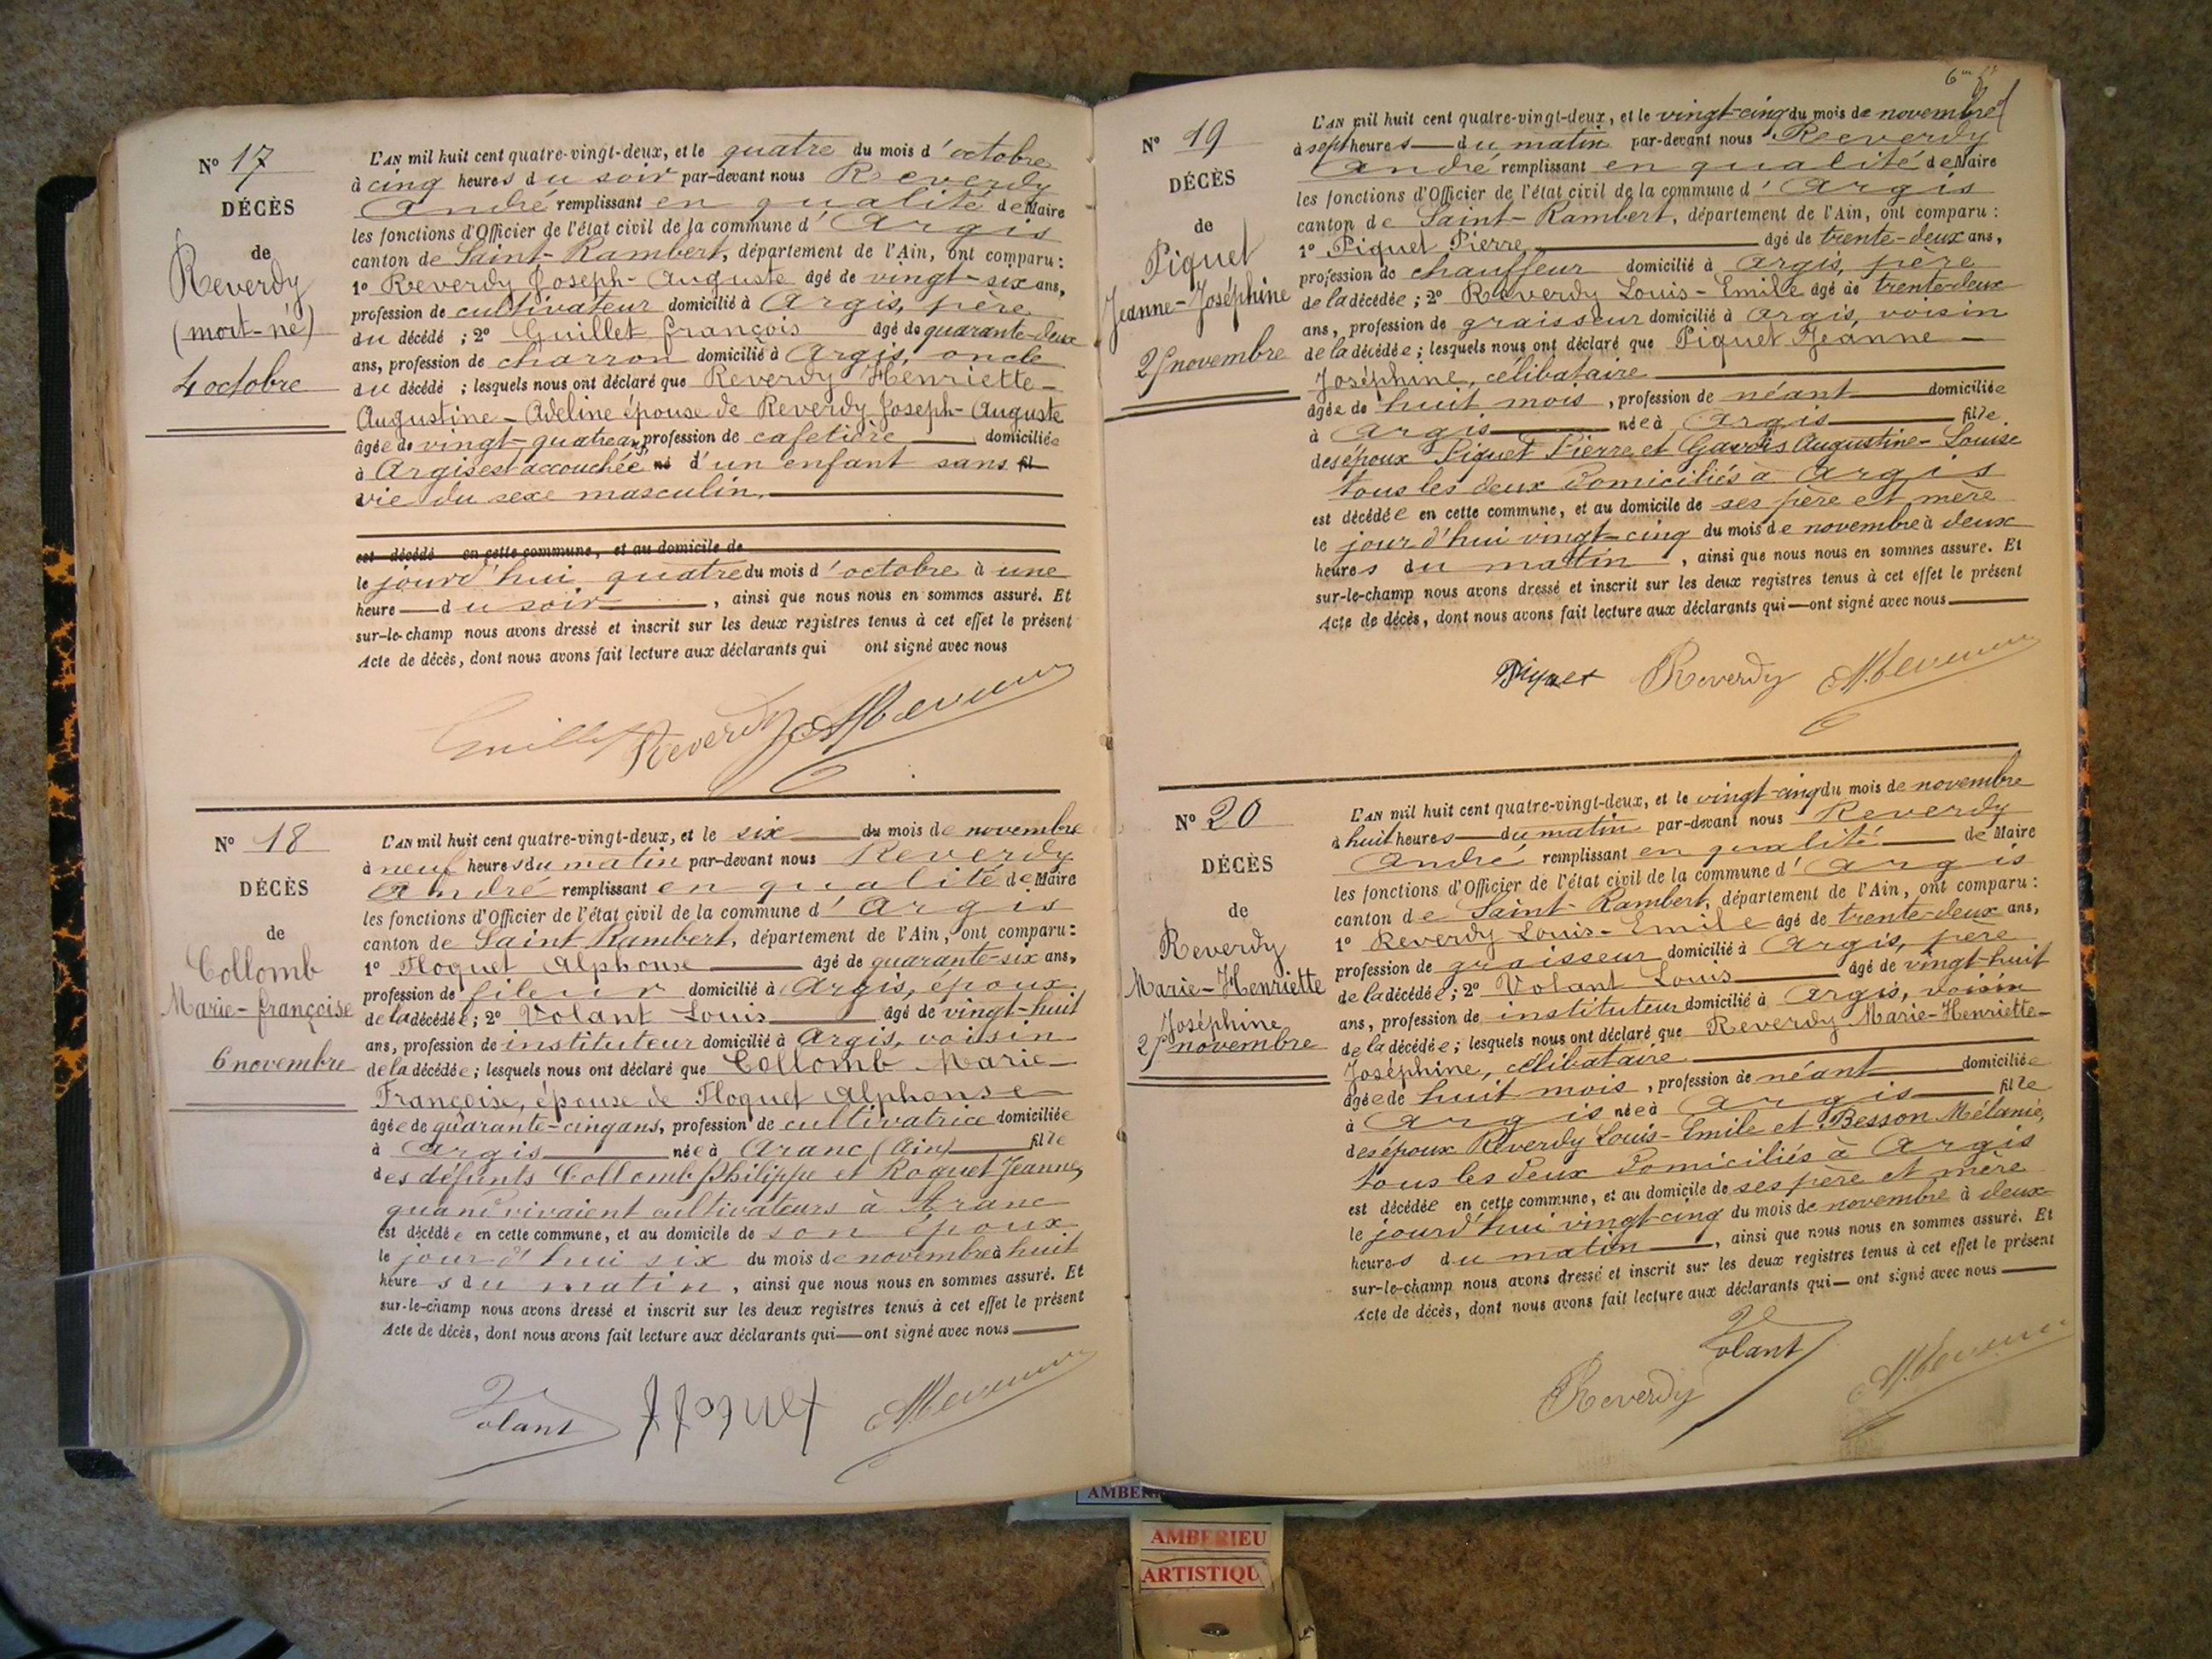 Nº 17
DÉCÈS
de
Reverdy
(mort-né)
4 octobre
L'AN mil huit cent quatre-vingt-deux, et le quatre du mois d'octobre
à cinq heures du soir par-devant nous Reverdy
André remplissant en qualité de Maire
les fonctions d'Officier de l'état civil de la commune d'Argis
canton de Saint-Rambert, département de l'Ain, ont comparu :
1º Reverdy Joseph-Auguste âgé de vingt-six ans,
profession de cultivateur domicilié à Argis, père
du décédé ; 2º Guillet François âgé de quarante-deux
ans, profession de charron domicilié à Argis, oncle
du décédé ; lesquels nous ont déclaré que Reverdy Henriette-
Augustine-Adeline épouse de Reverdy Joseph-Auguste
âgée de vingt-quatre ans, profession de cafetière domiciliée
à Argis est accouchée né d'un enfant sans fil
vie du sexe masculin,
est décédé en cette commune, et au domicile de
le jourd'hui quatre du mois d'octobre à une
heure du soir, ainsi que nous nous en sommes assuré. Et
sur-le-champ nous avons dressé et inscrit sur les deux registres tenus à cet effet le présent
Acte de décès, dont nous avons fait lecture aux déclarants qui ont signé avec nous
Guillet Reverdy
Nº 18
DÉCÈS
de
Collomb
Marie-Françoise
6 novembre
L'AN mil huit cent quatre-vingt-deux, et le six du mois de novembre
à neuf heures du matin par-devant nous Reverdy
André remplissant en qualité de Maire
les fonctions d'Officier de l'état civil de la commune d'Argis
canton de Saint Rambert, département de l'Ain, ont comparu :
1º Floquet Alphonse âgé de quarante-six ans,
profession de fileur domicilié à Argis, époux
de la décédée ; 2º Volant Louis âgé de vingt-huit
ans, profession de instituteur domicilié à Argis, voisin
de la décédée ; lesquels nous ont déclaré que Collomb Marie-
Françoise, épouse de Floquet Alphonse
âgée de quarante-cinq ans, profession de cultivatrice domiciliée
à Argis née à Aranc (Ain) fille
des défunts Collomb Philippe et Roquet Jeanne,
quand vivaient cultivateurs à Aranc
est décédée en cette commune, et au domicile de son époux
le jourd'hui six du mois de novembre à huit
heures du matin, ainsi que nous nous en sommes assuré. Et
sur-le-champ nous avons dressé et inscrit sur les deux registres tenus à cet effet le présent
Acte de décès, dont nous avons fait lecture aux déclarants qui ont signé avec nous
Volant
Nº 19
DÉCÈS
de
Piquet
Jeanne-Joséphine
25 novembre
L'AN mil huit cent quatre-vingt-deux, et le vingt-cinq du mois de novembre
à sept heures du matin par-devant nous Reverdy
André remplissant en qualité de Maire
les fonctions d'Officier de l'état civil de la commune d'Argis
canton de Saint-Rambert, département de l'Ain, ont comparu :
1º Piquet Pierre âgé de trente-deux ans,
profession de chauffeur domicilié à Argis, père
de la décédée ; 2º Reverdy Louis-Emile âgé de trente-deux
ans, profession de graisseur domicilié à Argis, voisin
de la décédée ; lesquels nous ont déclaré que Piquet Jeanne-
Joséphine, célibataire
âgée de huit mois, profession de néant domiciliée
à Argis née à Argis fille
des époux Piquet Pierre et Augustine-Louise
tous les deux domiciliés à Argis
est décédée en cette commune, et au domicile de ses père et mère
le jourd'hui vingt-cinq du mois de novembre à deux
heures du matin, ainsi que nous nous en sommes assuré. Et
sur-le-champ nous avons dressé et inscrit sur les deux registres tenus à cet effet le présent
Acte de décès, dont nous avons fait lecture aux déclarants qui ont signé avec nous
Piquet Reverdy
Nº 20
DÉCÈS
de
Reverdy
Marie-Henriette
Joséphine
25 novembre
L'AN mil huit cent quatre-vingt-deux, et le vingt-cinq du mois de novembre
à huit heures du matin par-devant nous Reverdy
André remplissant en qualité de Maire
les fonctions d'Officier de l'état civil de la commune d'Argis
canton de Saint-Rambert, département de l'Ain, ont comparu :
1º Reverdy Louis-Emile âgé de trente-deux ans,
profession de graisseur domicilié à Argis, père
de la décédée ; 2º Volant Louis âgé de vingt-huit
ans, profession de instituteur domicilié à Argis, voisin
de la décédée ; lesquels nous ont déclaré que Reverdy Marie-Henriette-
Joséphine, célibataire
âgée de huit mois, profession de néant domiciliée
à Argis née à Argis fille
des époux Reverdy Louis-Emile et Besson Mélanie,
tous les deux domiciliés à Argis
est décédée en cette commune, et au domicile de ses père et mère
le jourd'hui vingt-cinq du mois de novembre à deux
heures du matin, ainsi que nous nous en sommes assuré. Et
sur-le-champ nous avons dressé et inscrit sur les deux registres tenus à cet effet le présent
Acte de décès, dont nous avons fait lecture aux déclarants qui ont signé avec nous
Volant
Reverdy
AMBERIEU
ARTISTIQU